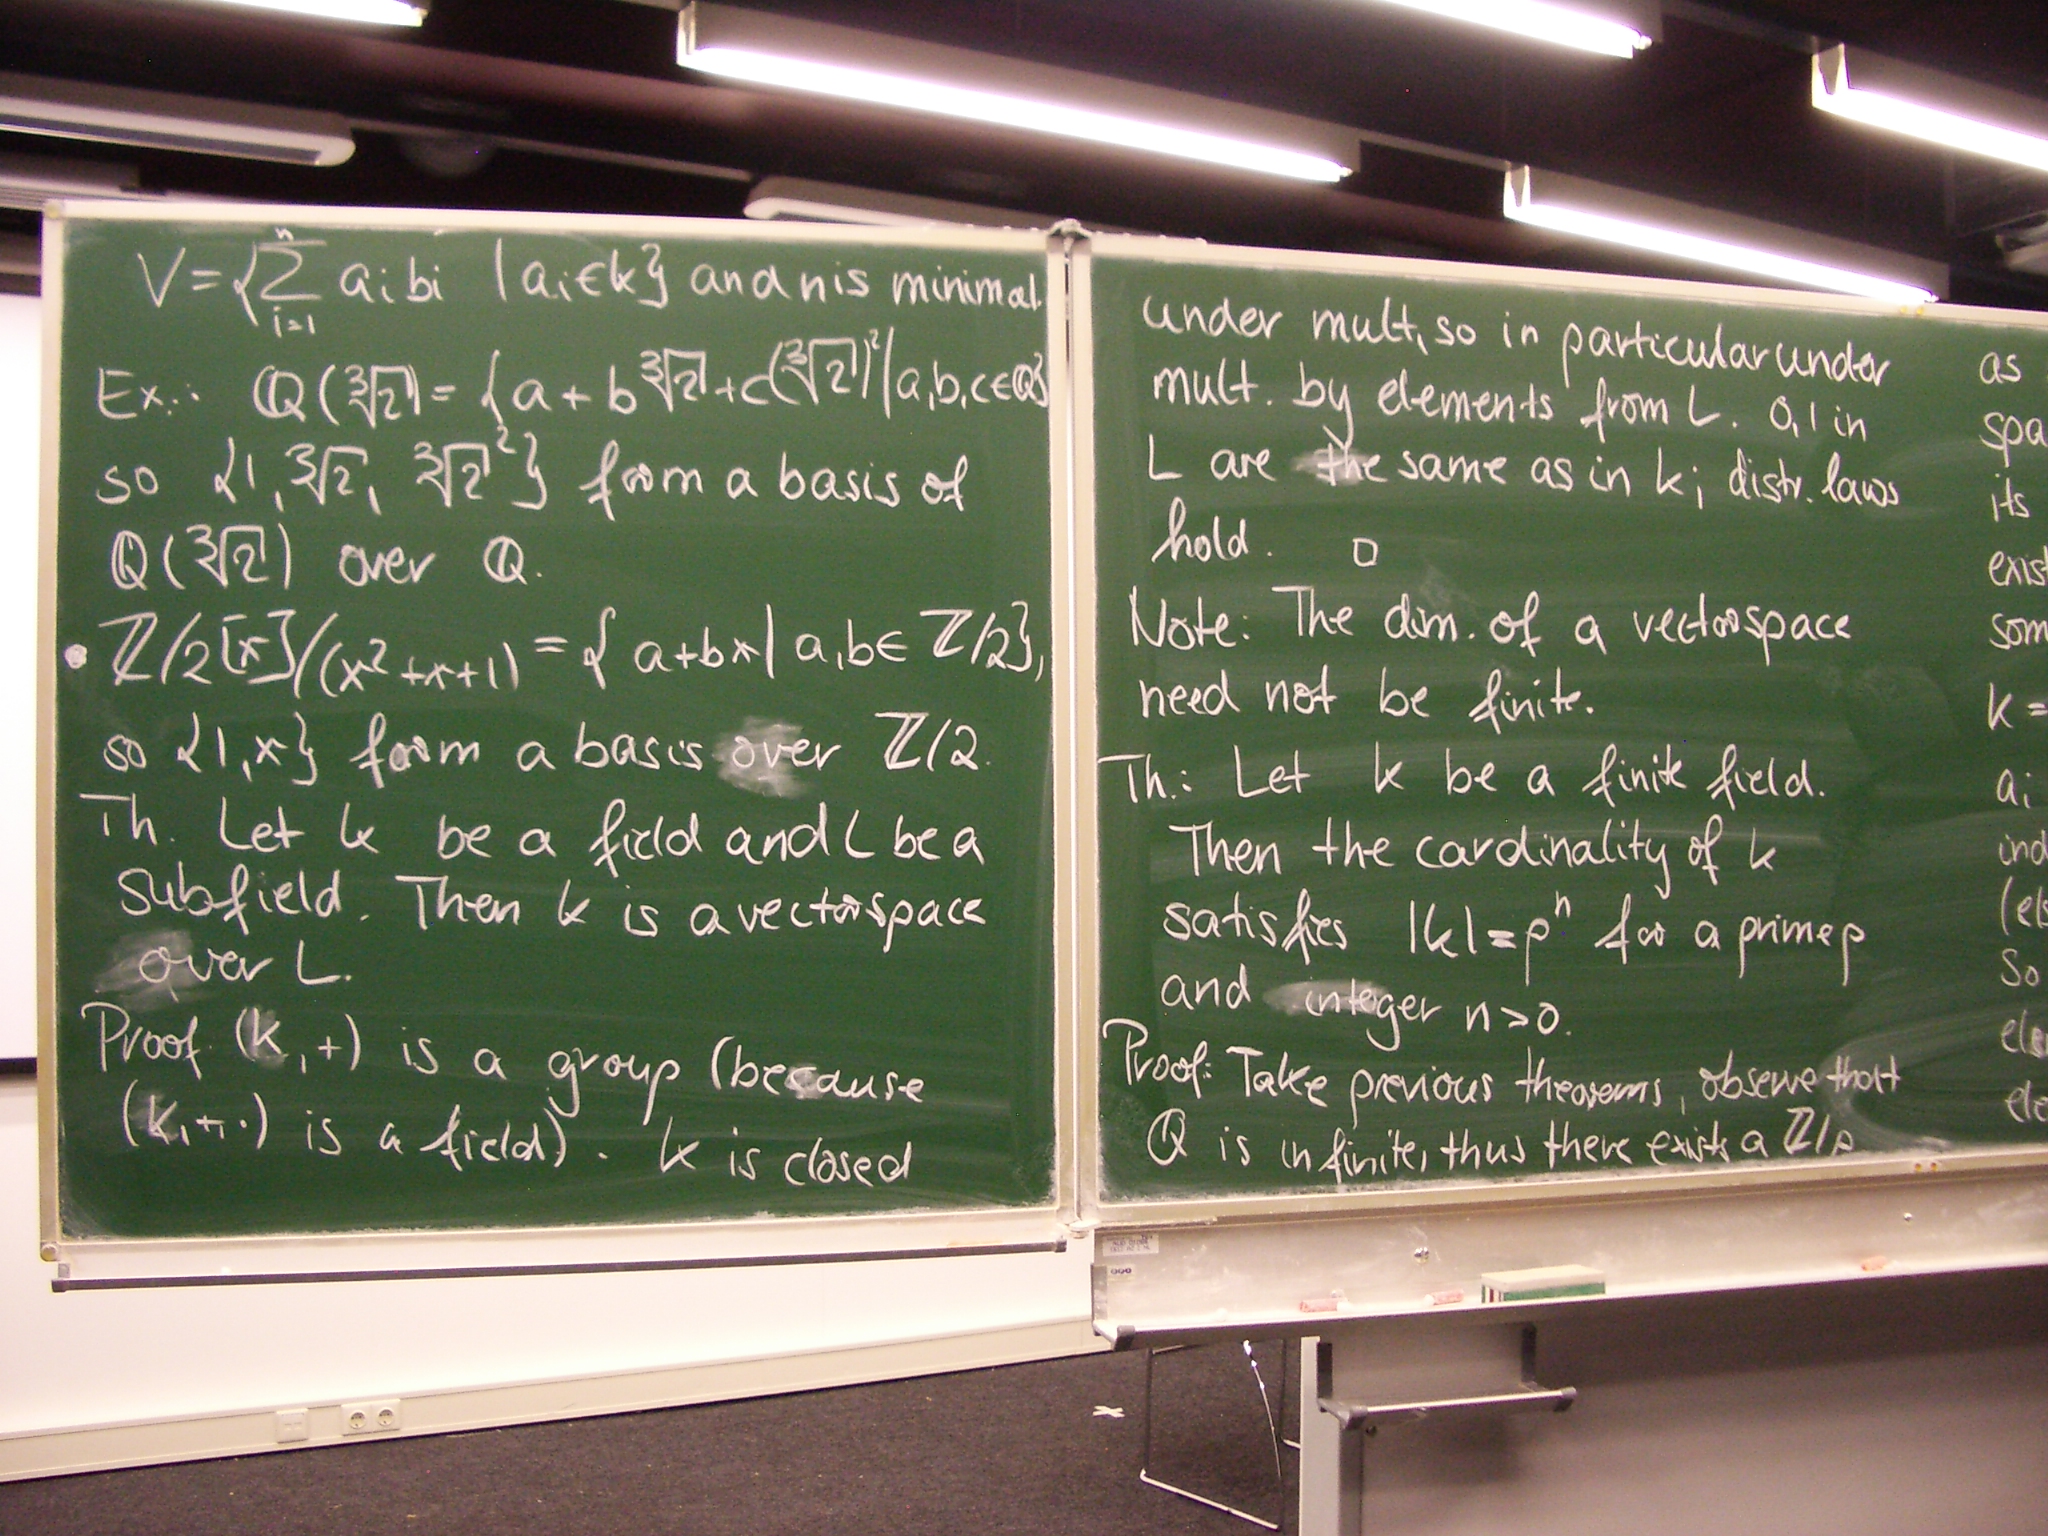 V = {∑_{i=1}^{n} a_i b_i | a_i ∈ k} and n is minimal.
Ex.: ℚ(∛2) = {a + b ∛2 + c(∛2)² | a, b, c ∈ ℚ}
so {1, ∛2, ∛2²} form a basis of
ℚ(∛2) over ℚ.
• ℤ/2[x]/(x²+x+1) = {a+bx | a, b ∈ ℤ/2},
so {1, x} form a basis over ℤ/2.
Th. Let k be a field and L be a
subfield. Then k is a vectorspace
over L.
Proof. (k, +) is a group (because
(k, +, ·) is a field). k is closed
under mult, so in particular under
mult. by elements from L. 0, 1 in
L are the same as in k; distr. laws
hold. □
Note: The dim. of a vectorspace
need not be finite.
Th.: Let k be a finite field.
Then the cardinality of k
satisfies |k| = pⁿ for a prime p
and integer n > 0.
Proof: Take previous theorems, observe that
ℚ is infinite, thus there exists a ℤ/p
as
spa
its
exist
som
k =
a_i
ind
(els
So
ele
ele